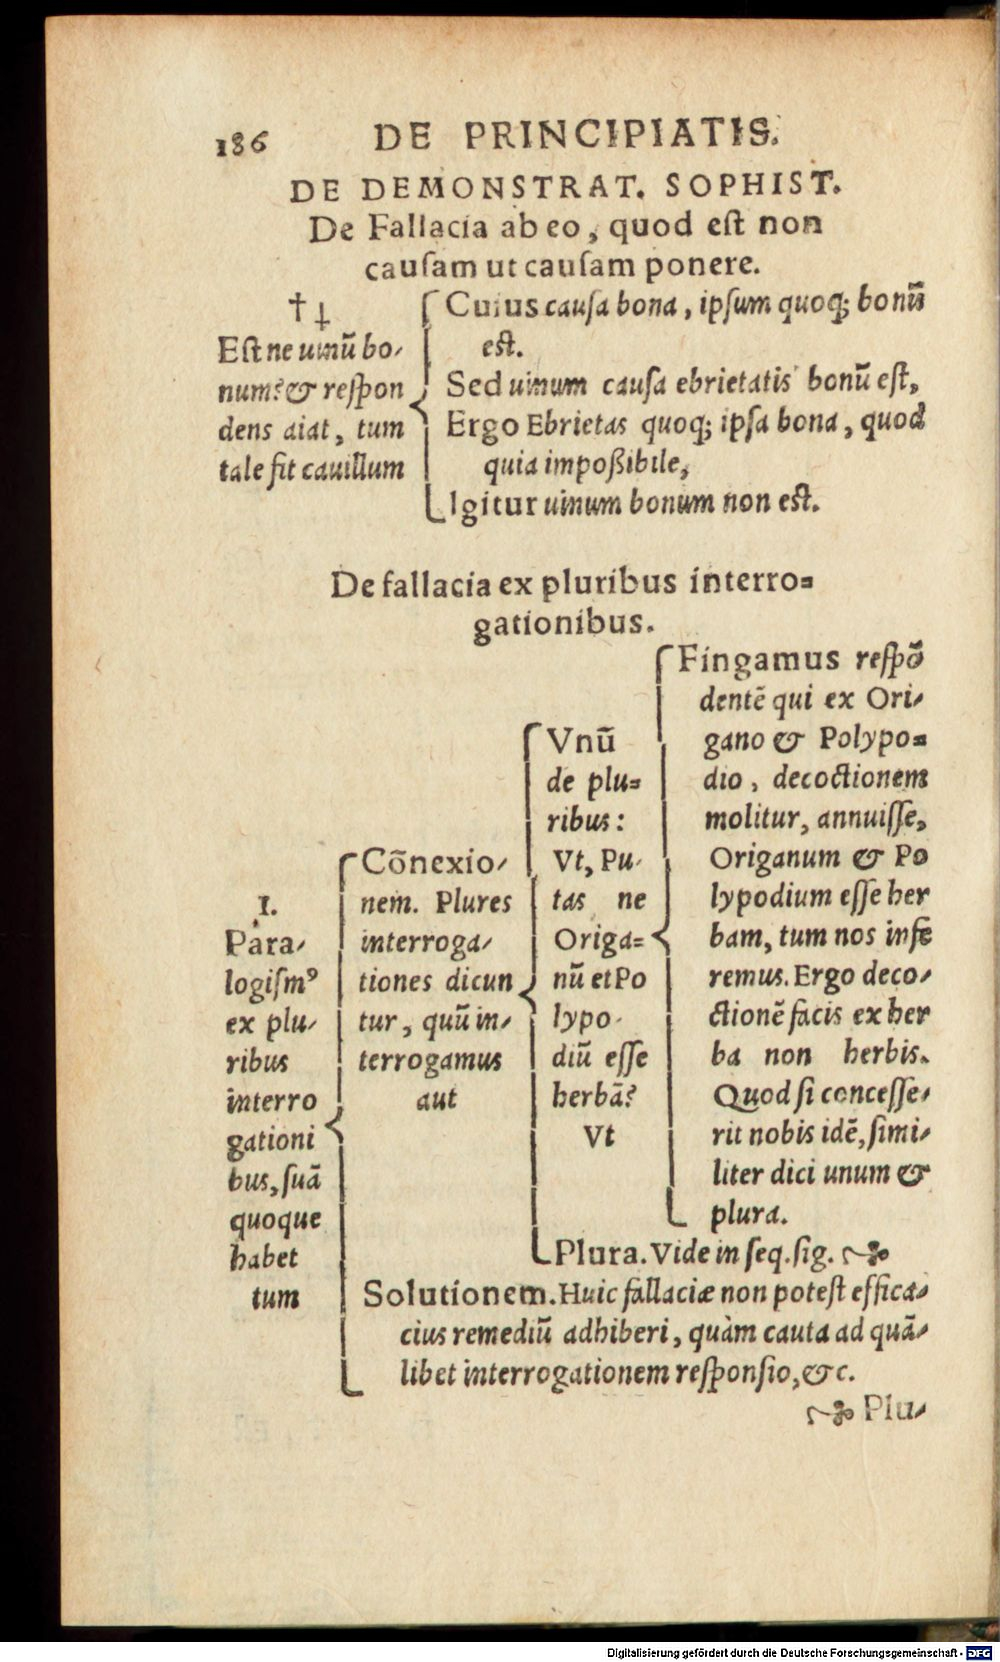 186 DE PRINCIPIATIS.
DE DEMONSTRAT. SOPHIST.
De Fallacia ab eo, quod eſt non
cauſam ut cauſam ponere.
Eſt ne uinũ bo⸗
num? & reſpon
dens aiat, tum
tale fit cauillum
Cuius cauſa bona, ipſum quoq; bonũ
eſt.
Sed uinum cauſa ebrietatis bonũ eſt,
Ergo Ebrietas quoq; ipſa bona, quod
quia impoßibile,
Igitur uinum bonum non eſt.
De fallacia ex pluribus interro⸗
gationibus.
1.
Para⸗
logiſmꝰ
ex plu⸗
ribus
interro
gationi
bus, ſuã
quoque
habet
tum
Cõnexio⸗
nem. Plures
interroga⸗
tiones dicun
tur, quũ in⸗
terrogamus
aut
Vnũ
de plu⸗
ribus:
Vt, Pu⸗
tas ne
Origa⸗
nũ et Po
lypo⸗
diũ eſſe
herbã?
Vt
Fingamus reſpõ
dentẽ qui ex Ori⸗
gano & Polypo⸗
dio, decoctionem
molitur, annuiſſe,
Origanum & Po
lypodium eſſe her
bam, tum nos infe
remus. Ergo deco⸗
ctionẽ facis ex her
ba non herbis.
Quod ſi conceſſe⸗
rit nobis idẽ, ſimi⸗
liter dici unum &
plura.
Plura. Vide in ſeq. ſig. ☙
Solutionem. Huic fallaciæ non poteſt effica⸗
cius remediũ adhiberi, quàm cauta ad quã⸗
libet interrogationem reſponſio, & c.
☙ Plu⸗
Digitalisierung gefördert durch die Deutsche Forschungsgemeinschaft - DFG